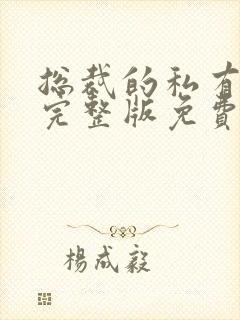 总裁的私有
完整版免費
楊成毅